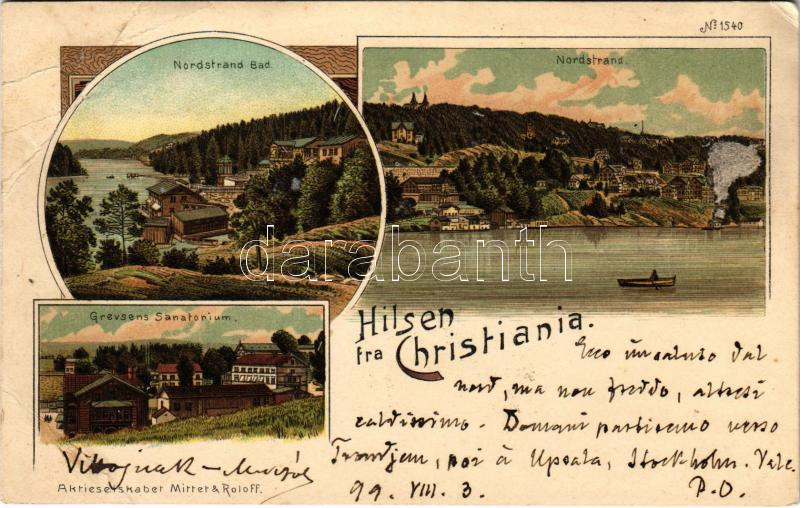 № 1540
Nordstrand Bad.
Nordstrand.
darabanth
Grevsens Sanatorium.
Hilsen
fra Christiania.
Ecco un saluto dal
nord, ma non freddo, altresì
caldissimo. Domani partiremo verso
Trondjem, poi à Upsala, Stockholm. Vale.
99. VIII. 3. P.O.
Aktieselskabet Mittet & Roloff.